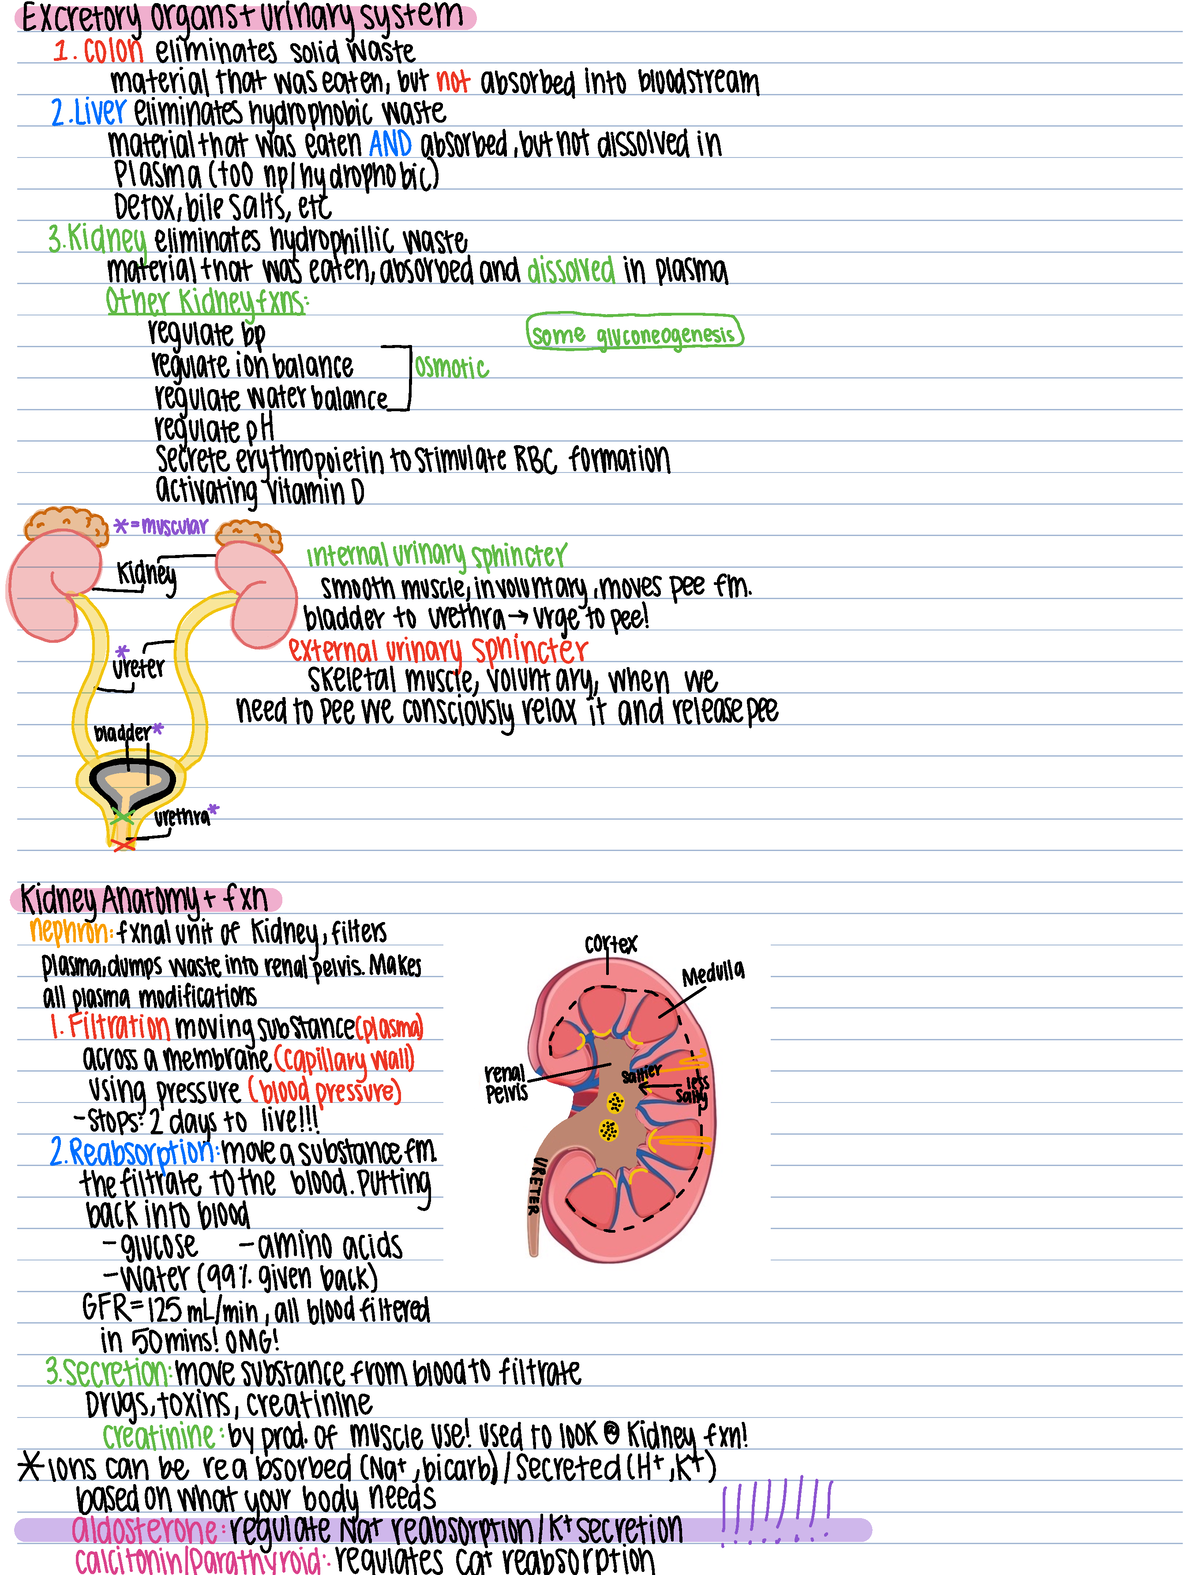 Excretory organs + urinary system
1. Colon eliminates solid waste
material that was eaten, but not absorbed into bloodstream
2. Liver eliminates hydrophobic waste
material that was eaten AND absorbed, but not dissolved in
Plasma (too np/hydrophobic)
Detox, bile salts, etc
3. Kidney eliminates hydrophillic waste
material that was eaten, absorbed and dissolved in plasma
Other Kidney fxns:
regulate bp
some gluconeogenesis
regulate ion balance
osmotic
regulate water balance
regulate pH
Secrete erythropoietin to stimulate RBC formation
activating vitamin D
* = muscular
Kidney
internal urinary sphincter
smooth muscle, involuntary, moves pee fm.
bladder to urethra → urge to pee!
external urinary sphincter
skeletal muscle, voluntary, when we
need to pee we consciously relax it and release pee
*
ureter
bladder *
urethra *
Kidney Anatomy + fxn
nephron: fxnal unit of kidney, filters
plasma, dumps waste into renal pelvis. Makes
all plasma modifications
1. Filtration moving substance (plasma)
across a membrane (capillary wall)
using pressure (blood pressure)
- Stops: 2 days to live!!!
2. Reabsorption: move a substance fm.
the filtrate to the blood. Putting
back into blood
- glucose - amino acids
- Water (99% given back)
GFR = 125 mL/min, all blood filtered
in 50 mins! OMG!
cortex
Medulla
renal
Pelvis
saltier
less
salty
URETER
3. Secretion: move substance from blood to filtrate
Drugs, toxins, creatinine
creatinine: by prod. of muscle use! used to look @ Kidney fxn!
* ions can be reabsorbed (Na+, bicarb) / Secreted (H+, K+)
based on what your body needs
aldosterone: regulate Na+ reabsorption / K+ secretion !!!!!!!!
calcitonin/Parathyroid: regulates Ca+ reabsorption